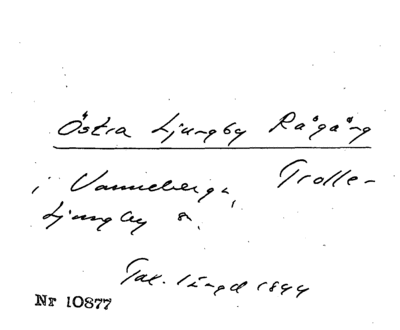 Östra Ljungby Rågång
i Vanneberga, Trolle-
Ljungby s.
Tak. längd 1844
Nr 10877